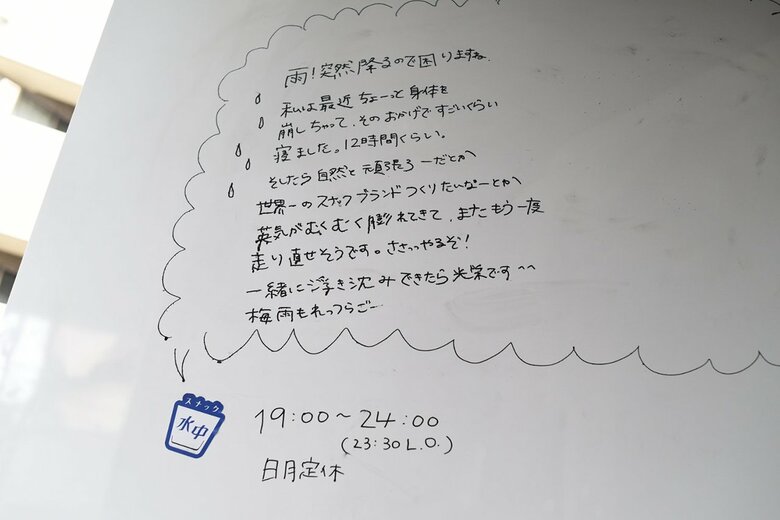 雨！突然降るので困りますね
私は最近ちょーっと身体を
崩しちゃって、そのおかげですごいくらい
寝ました。12時間くらい。
そしたら自然と頑張ろーだとか
世界一のスナックブランドつくりたいなーとか
英気がむくむく膨れてきて、またもう一度
走り直せそうです。ささっやるぞ！
一緒に浮き沈みできたら光栄です^^
梅雨もれっつらごー
スナック
水中
19:00～24:00
(23:30 L.O.)
日月定休